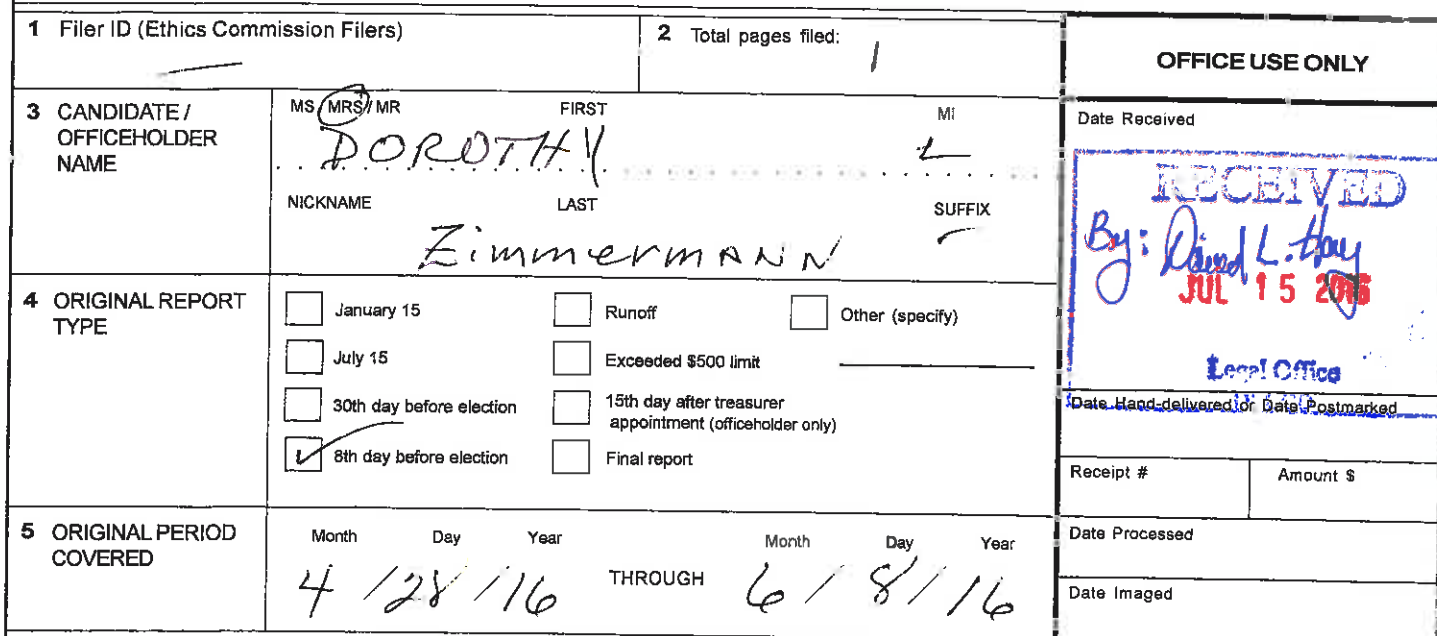 1 Filer ID (Ethics Commission Filers)
—
2 Total pages filed:
1
OFFICE USE ONLY
3 CANDIDATE / OFFICEHOLDER NAME
MS / MRS / MR FIRST MI
DOROTHY L
NICKNAME LAST SUFFIX
Zimmermann —
Date Received
RECEIVED
By: David L. Hay
JUL 15 2016
Legal Office
4 ORIGINAL REPORT TYPE
January 15
Runoff
Other (specify)
July 15
Exceeded $500 limit
30th day before election
15th day after treasurer
appointment (officeholder only)
8th day before election
Final report
Date Hand-delivered or Date Postmarked
Receipt # Amount $
5 ORIGINAL PERIOD COVERED
Month Day Year
4 / 28 / 16
THROUGH
Month Day Year
6 / 8 / 16
Date Processed
Date Imaged